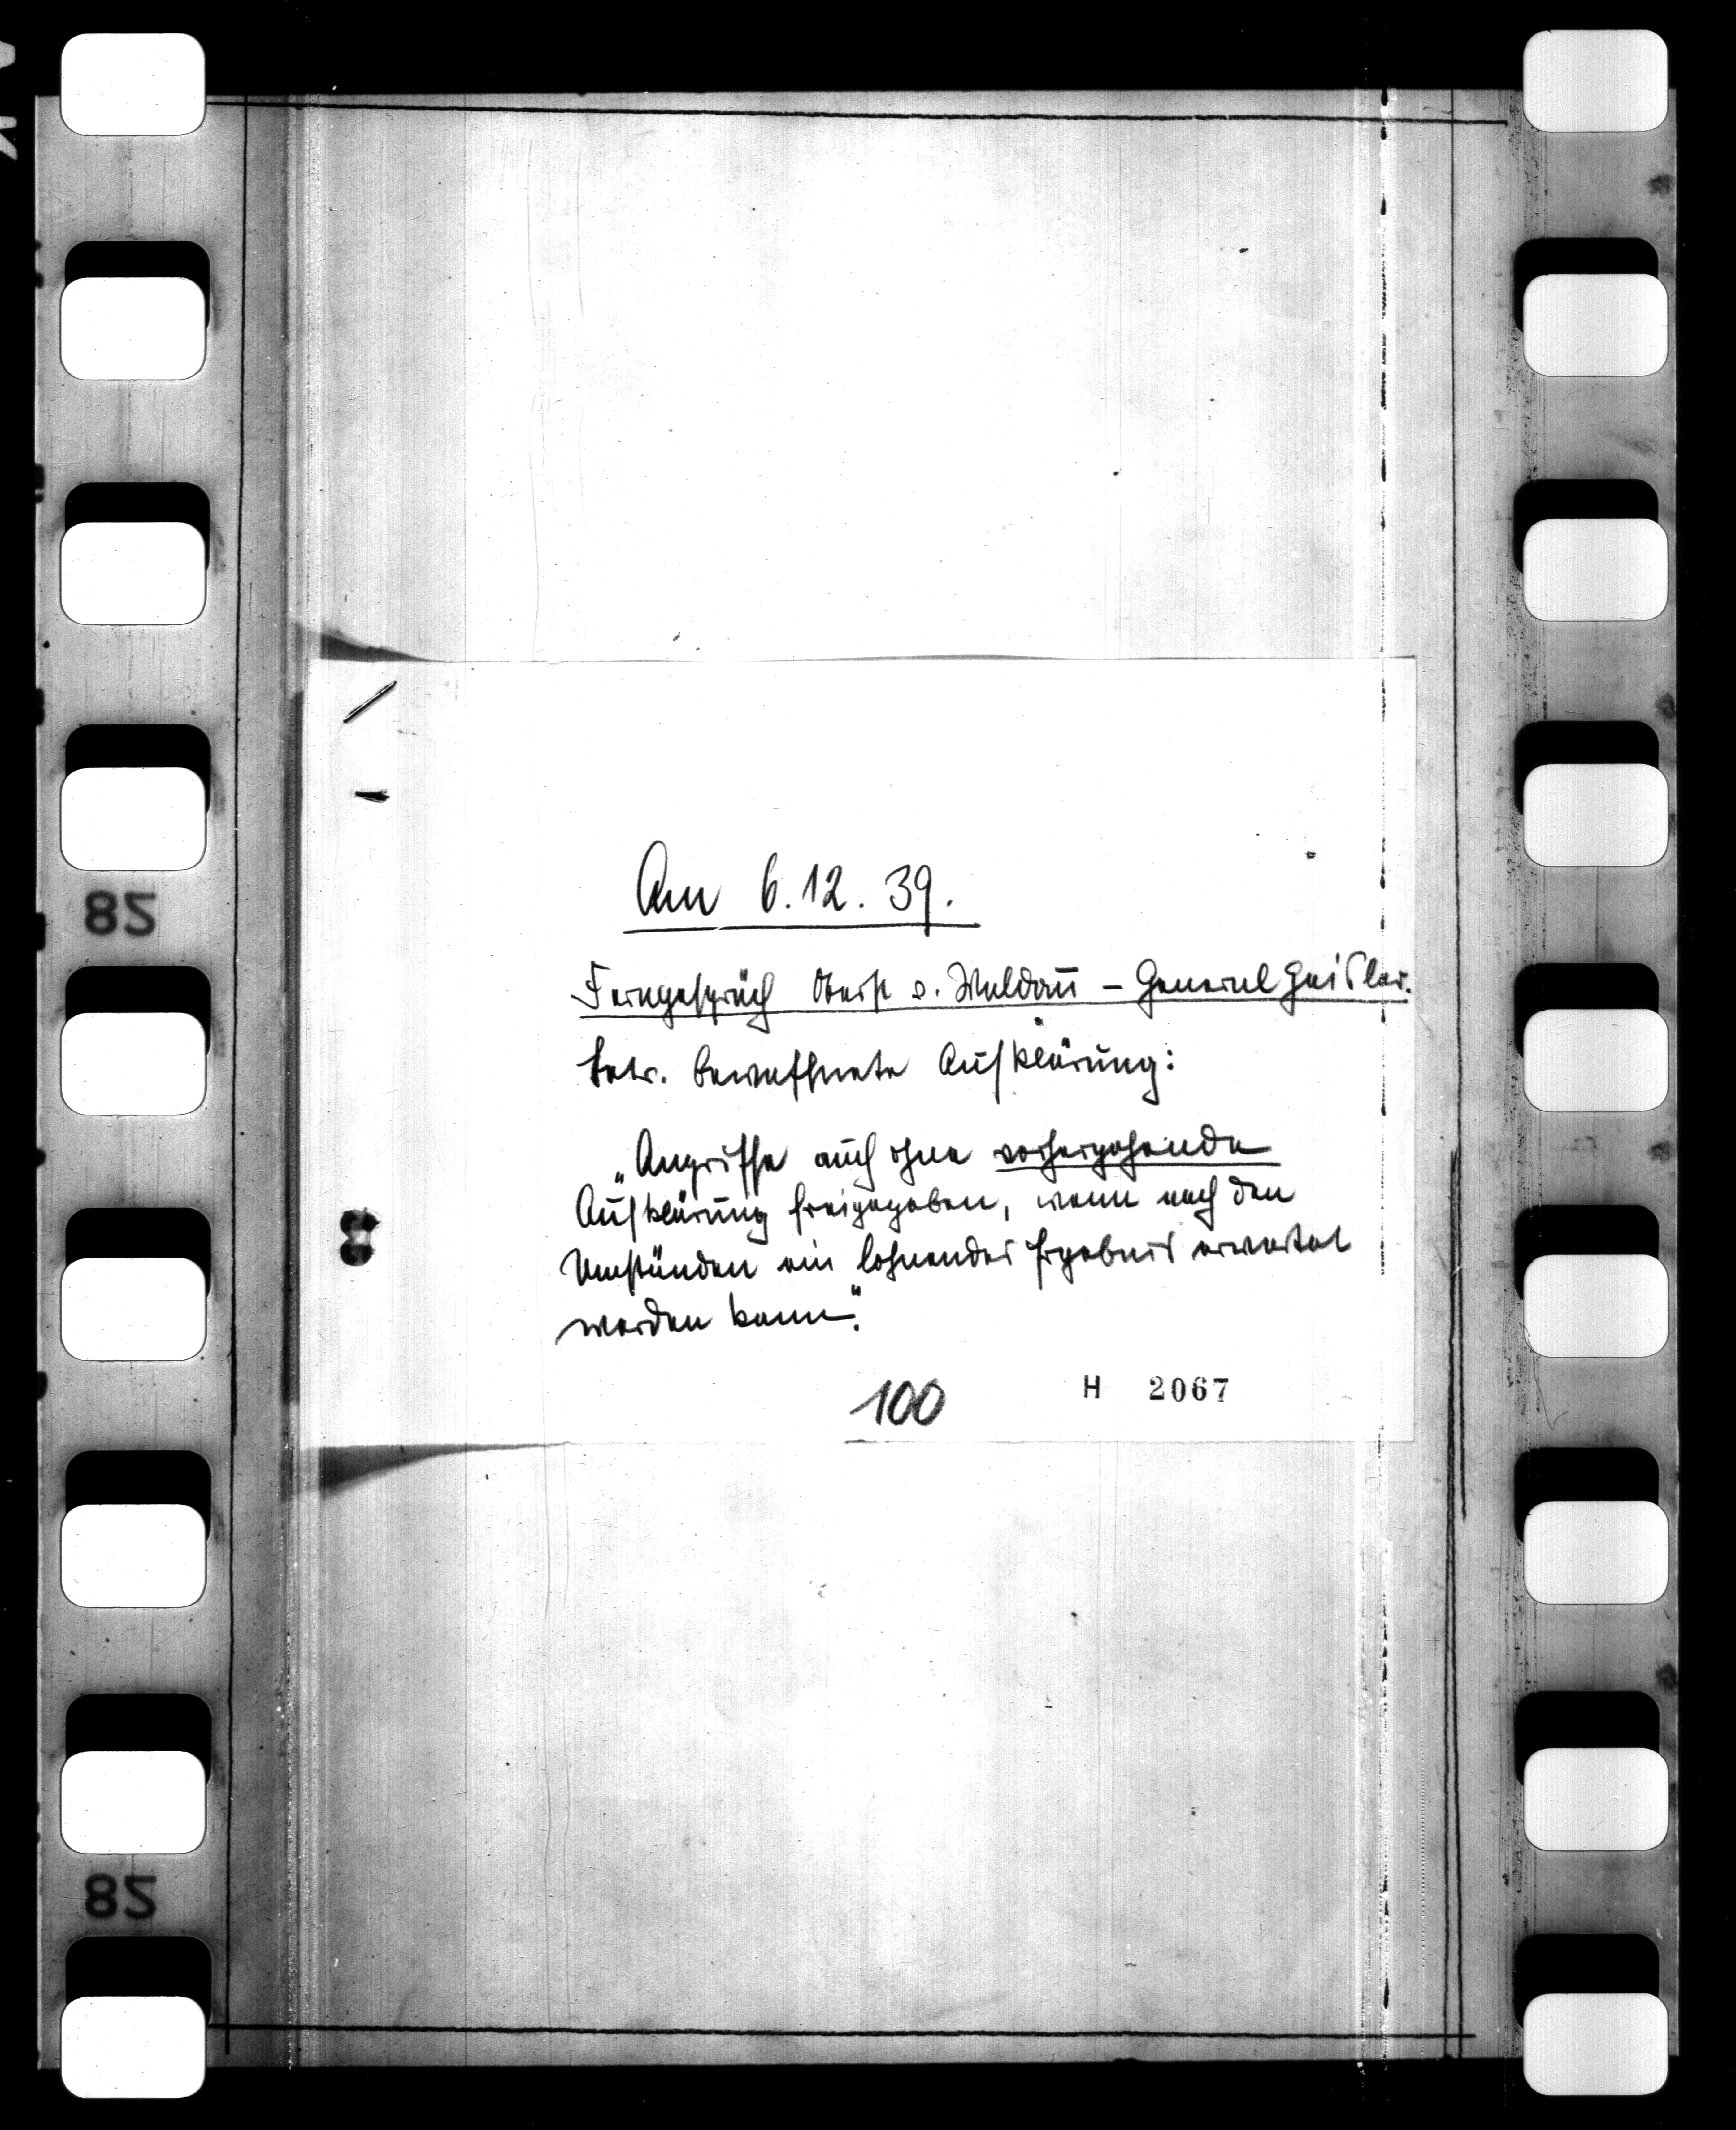 Am 6.12.39.
Ferngespräch Oberst v. Waldau – General Geisler.
betr. bewaffnete Aufklärung:
„Angriffe auch ohne vorhergehende
Aufklärung freigegeben, wenn nach den
Umständen ein lohnendes Ergebnis erwartet
werden kann".
100
H 2067
82
82